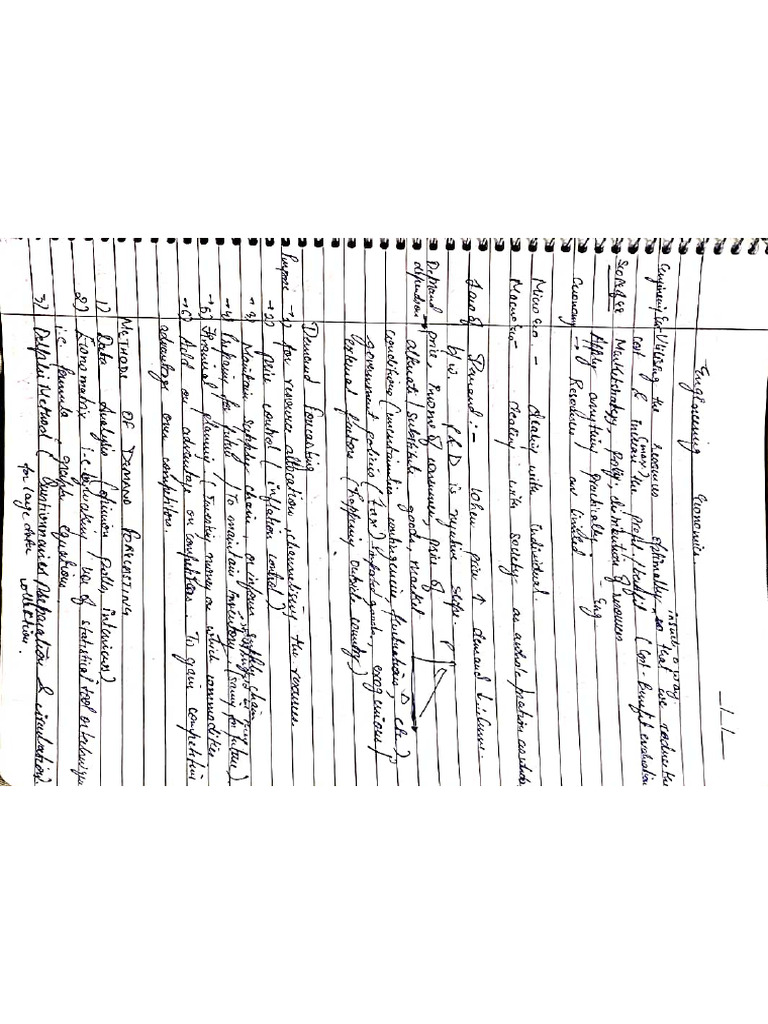 Engineering Economics.
in such a way
Engineering Eco- Utilizing the resources optimally, so that we reduce the
cost & increase (max.) the profit/benefit (Cost-Benefit evaluation
Scope of EE Multistrategy, Policy, distribution of resources
Apply anything practically - Eng
Economy → Resources are limited
Micro eco - dealing with individual.
Macro eco - dealing with society as a whole
Law of Demand :- When price ↑ demand ↓
b/w P & D is negative slope. P
Demand → price, income of consumer, price of
dependson alternate/substitute goods, market
conditions (uncertainties, contingencies, fluctuations, etc.),
government policies (Tax) imposed goods,
External factors (Happening outside country)
Demand Forecasting
Purpose → 1) For resource allocation, the resources.
→ 2) price control (inflation control)
→ 3) Maintain supply chain, supply chain
→ 4) Prepare for future / To maintain inventory. (saving for future)
→ 5) Financial planning (Investing money on which commodities
→ 6) Add on advantage on competitors. To gain competitive
advantage over competitors.
METHODS OF DEMAND FORECASTING
1) Data Analysis (opinion polls, interviews)
2) Econometric i.e. use of statistical tool or technique
i.e. formula, graph, equations
3) Delphi Method (Questionnaires Preparation & circulation)
for large data collection.